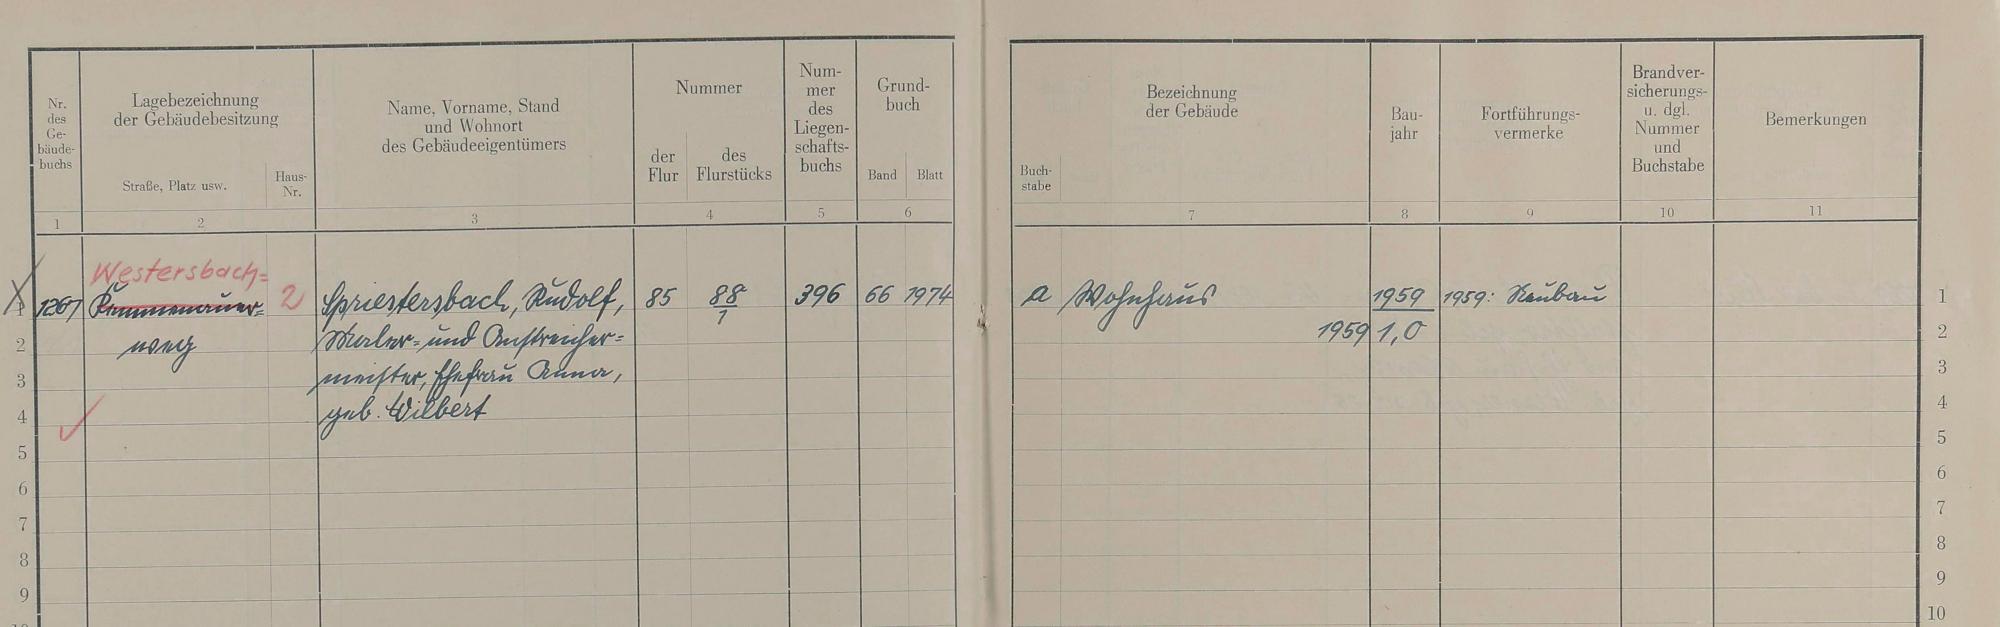 Nr. des Ge- bäude- buchs
Lagebezeichnung
der Gebäudebesitzung
Straße, Platz usw.
Haus- Nr.
Name, Vorname, Stand
und Wohnort
des Gebäudeeigentümers
Nummer
der Flur
des Flurstücks
Num- mer des Liegen- schafts- buchs
Grund- buch
Band
Blatt
1
2
3
4
5
6
Buch- stabe
Bezeichnung
der Gebäude
Bau- jahr
Fortführungs- vermerke
Brandver- sicherungs- u. dgl. Nummer und Buchstabe
Bemerkungen
7
8
9
10
11
Westersbach=
X 1 1267 Kummenauer= 2 Spriestersbach, Rudolf, 85 88/1 396 66 1974 a Wohnhaus 1959 1959: Neubau 1
2 weg Maler= und Anstreicher= 1959 1,0 2
3 meister, Ehefrau Anna, 3
4 geb. Wilbert 4
5 5
6 6
7 7
8 8
9 9
10 10